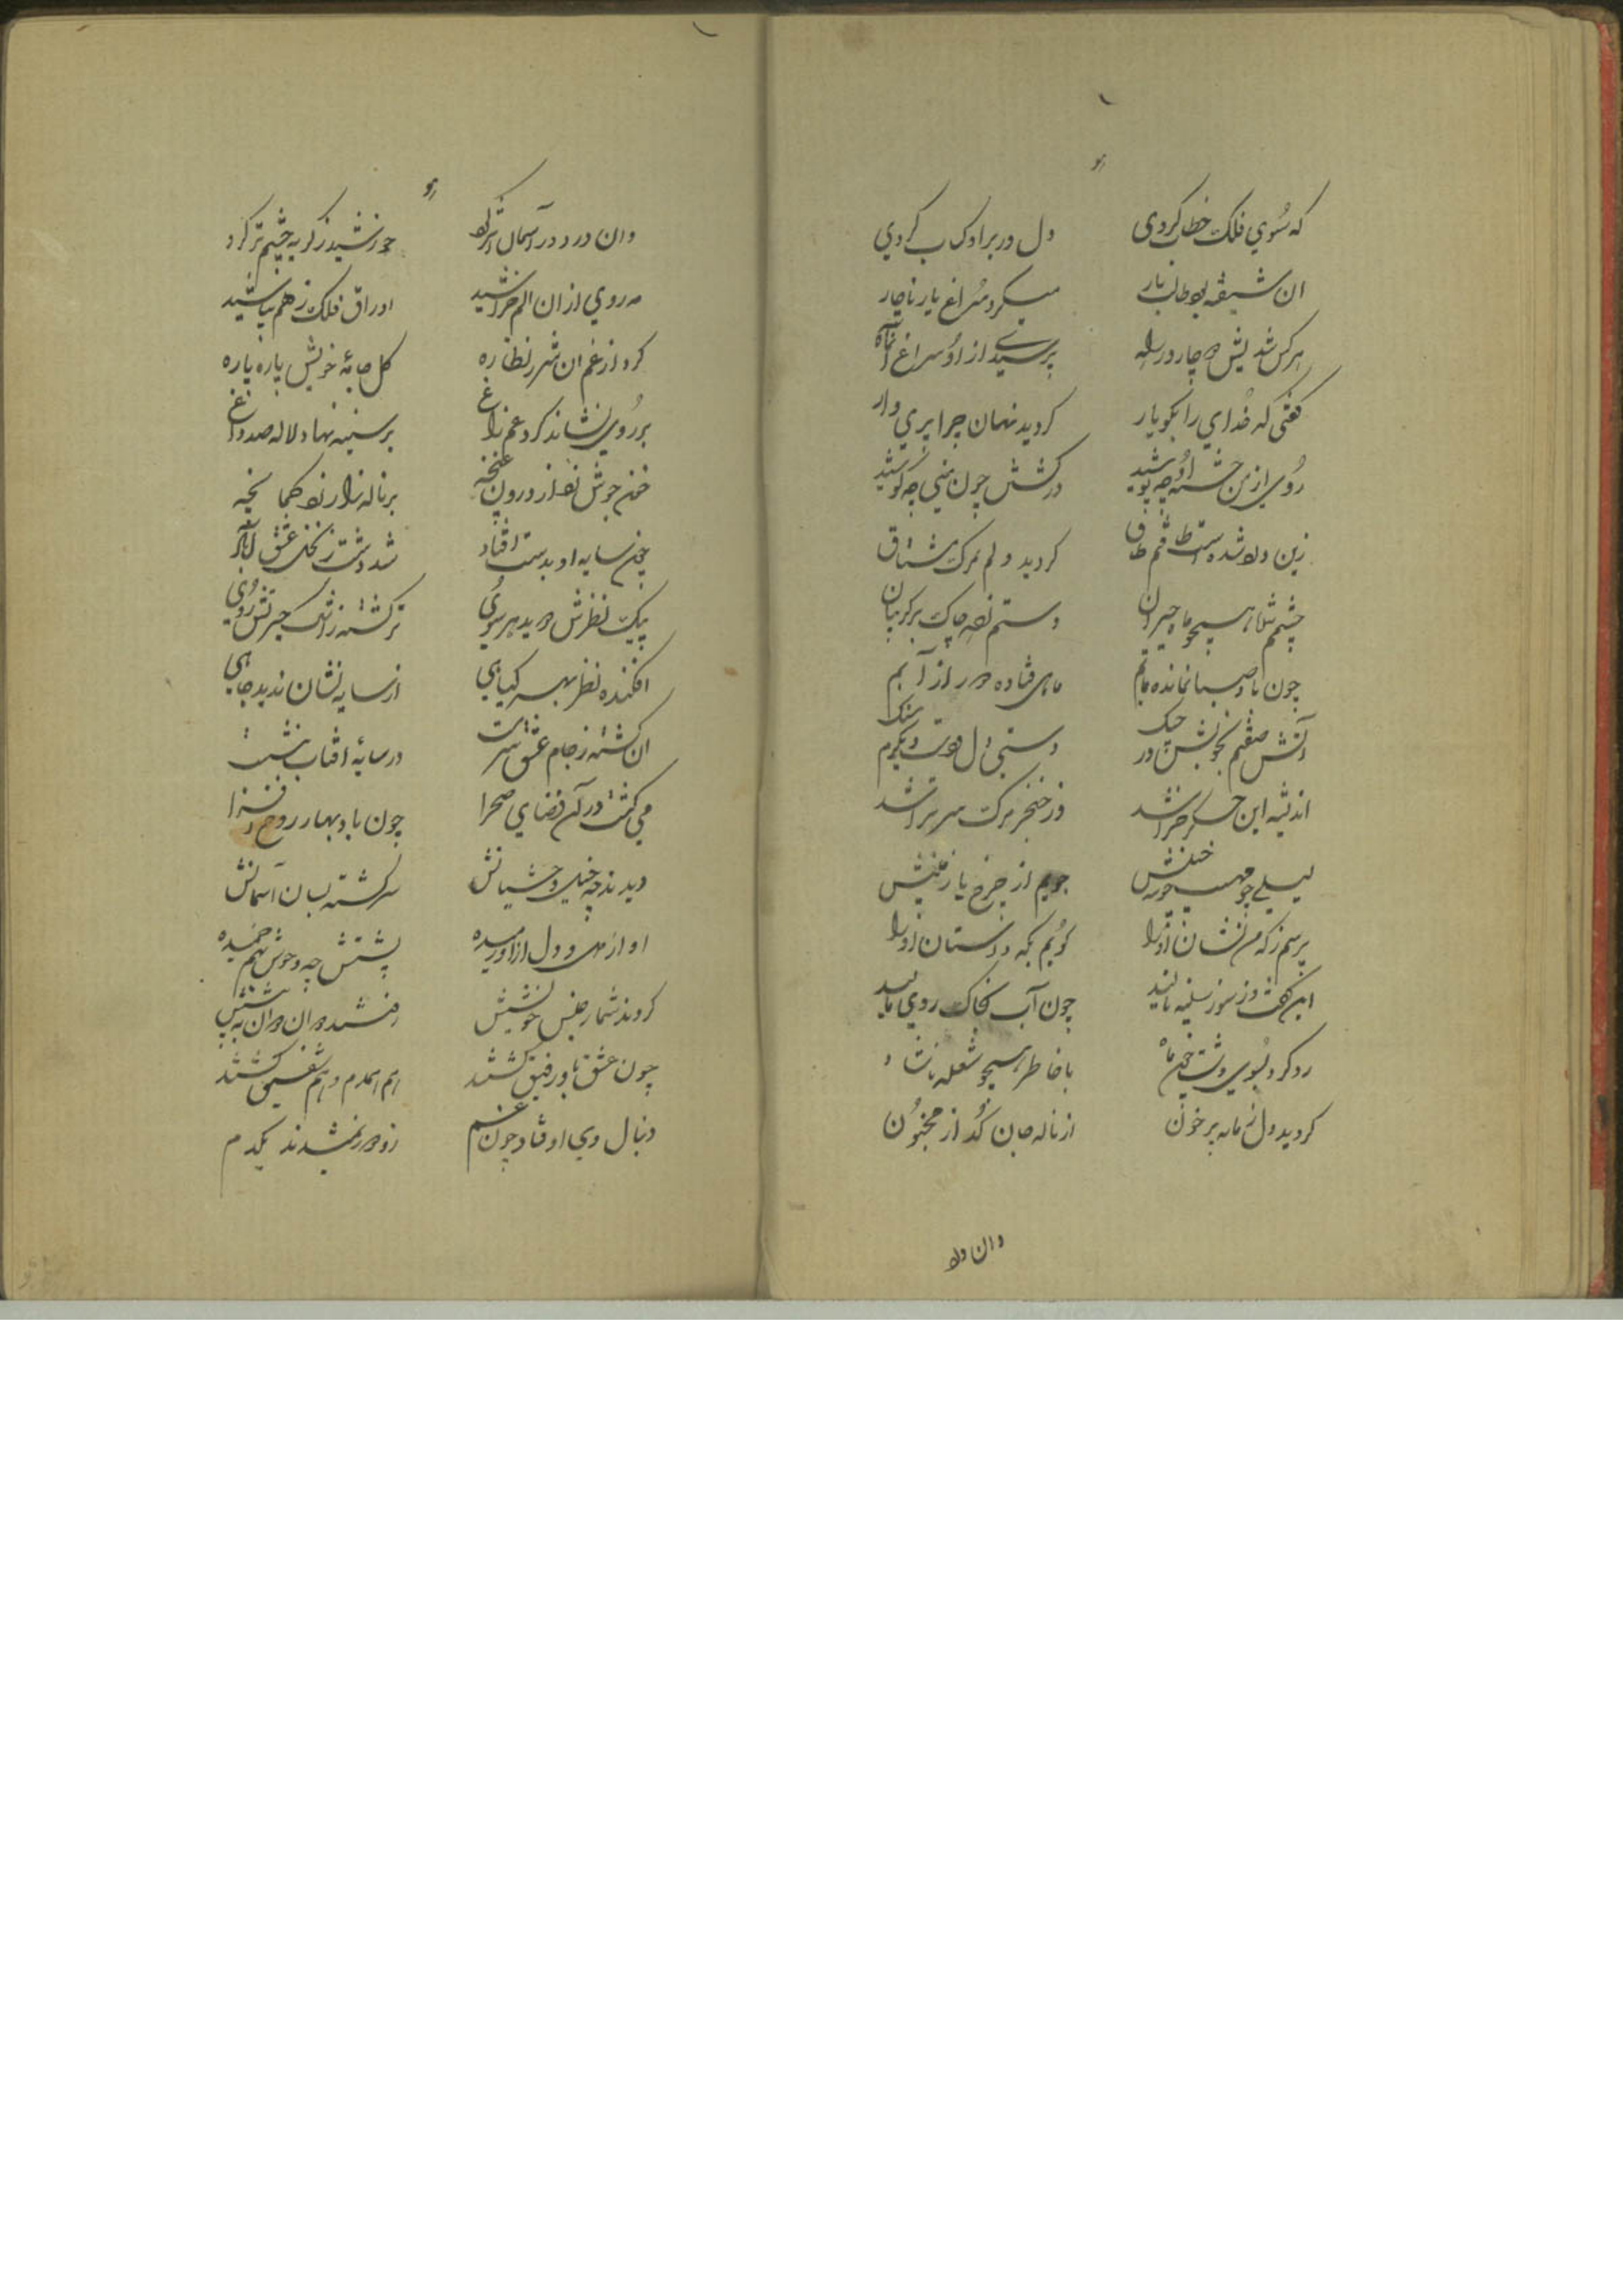 که سوی فلک خطاب کردی دل در بر او کباب کردی
ان شیفته بود طالب یار میکرد سراغ یار ناچار
هر کس شدیش دچار در راه پرسیدی از او سراغ آنماه
گفتی که خدای را بگو یار گردید نهان چرا پری وار
روی از من خسته او چه پوشید در کشتن چون منی چه کوشید
زین درد شده است طاقتم طاق گردید دلم بمرگ مشتاق
چشم همیچو ماه حیران دستم زده چاک بر گریبان
چون باد صبا نمانده تابم ماهی فتاده دور از آبم
آتش صفتم بخویش در جنک دستی بر دل و دست دیگرم سنک
اندیشه این جگر خراشد وز خنجر مرگ سر تراشد
لیلی چو مه خویش جویم از چرخ یار خویش
پرسم ز که من نشان او را گویم بکه داستان او را
این گفت و ز سوز سینه نالید چون آب بخاک روی مالید
رو کرد بسوی دشت با خاطر همیچو شعله ناشاد
گردید دل زمانه پر خون از ناله جان گداز مجنون
وان درد
وان درد در آسمان اثر کرد خورشید ز گریه چشم تر کرد
مه روی از ان الم خراشید اوراق فلک ز هم بپاشید
کرد از غم ان شرر نظاره گل جامهٔ خویش پاره پاره
بر روی نشاند گرد غم زاغ بر سینه نهاد لاله صد داغ
خون جوش زد از درون غنچه بر ناله زار زد کمانچه
چون سایه او بدشت افتاد شد دشت ز نخل عشق آباد
پیک نظرش دوید هر سوی تر گشته ز اشک حیرتش روی
افکنده نظر بهر گیاهی از سایه نشان ندید جاهی
ان گشته ز جام عشق سرمست در سایهٔ افتاب بنشست
می گشت در آن فضای صحرا چون باد بهار روح افزا
دیدند چه خیل وحشیانش سرگشته بسان آسمانش
او از من و دل از او رمیده پشتش چه وحوش هم خمیده
کردند شمار جنس خویشش رفتند دوان دوان به پیشش
چون عشق باو رفیق گشتند هم همدم و هم شفیق گشتند
دنبال وی اوفتاد چون غم زو دور نمیشدند یکدم